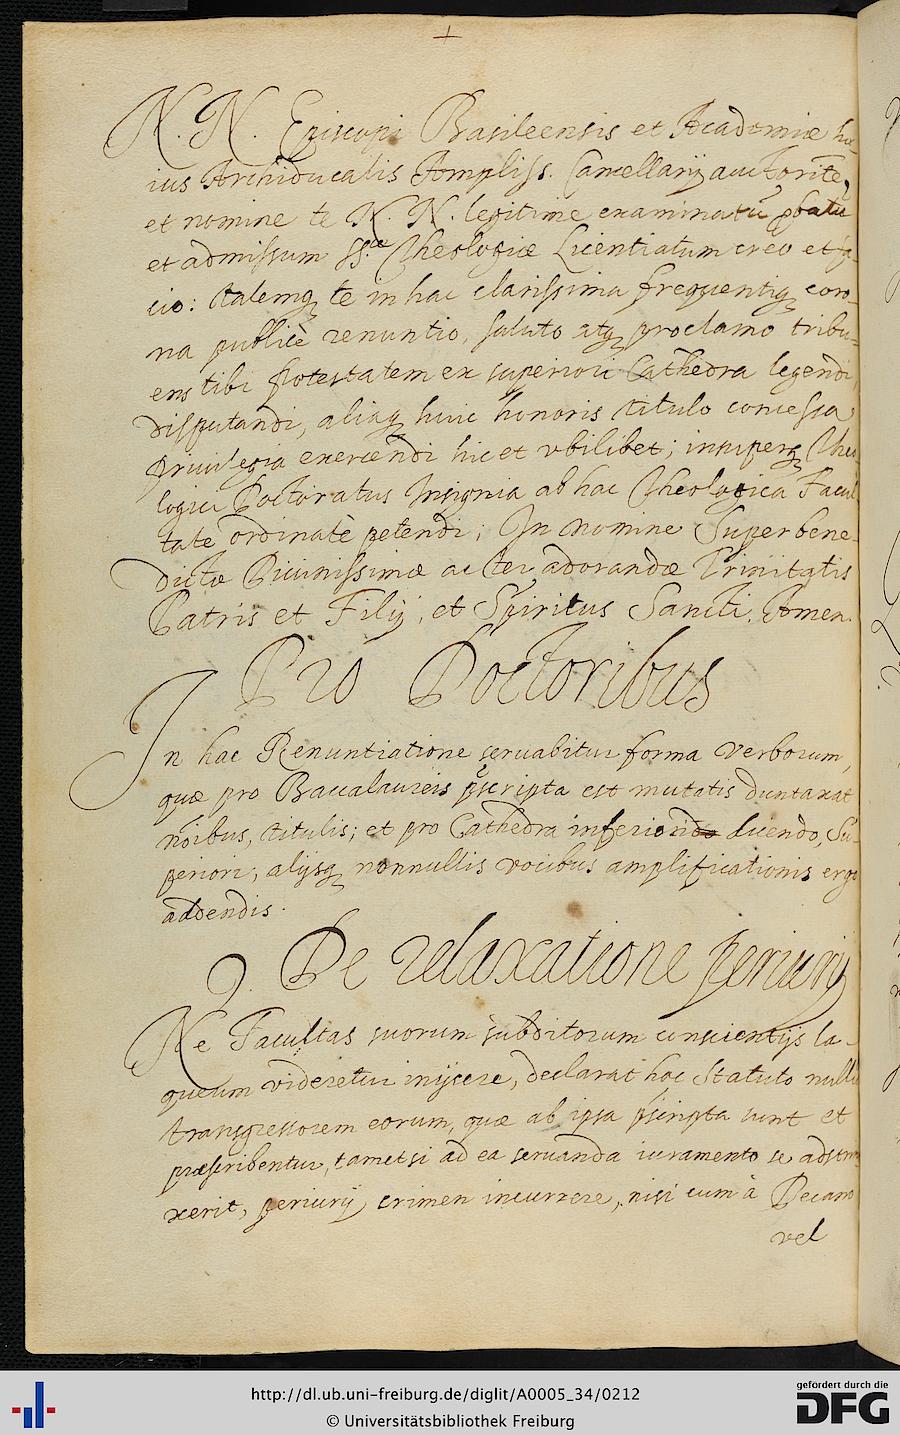 N. N. Episcopi Basileensis et Academiæ hu-
ius Archiducalis Ampliss. Cancellarij auctorite,
et nomine te N. N. legitime examinatũ ꝓbatũ
et admissum SS.æ Theologiæ Licentiatum creo et fa-
cio: Talemq te in hac clarissima frequentiq coro-
na publicè renuntio, saluto atq proclamo tribu-
ens tibi potestatem ex superiori Cathedra legendi,
disputandi, aliaq huic honoris titulo concessa
priuilegia exercendi hic et vbilibet; insuperq Theo
logici Doctoratus Insignia ab hac Theologica Facul
tate ordinatè petendi; In nomine Superbene-
dictæ Diuinissimæ ac ter adorandæ Trinitatis
Patris et Filij, et Spiritus Sancti. Amen.
Pro Doctoribus
In hac Renuntiatione seruabitur forma verborum,
quæ pro Baccalaureis p̃scripta est mutatis duntaxat
nõibus, titulis; et pro Cathedra inferiori ducendo, Su-
periori, alijsq nonnullis vocibus amplificationis ergo
addendis.
9. De relaxatione periurij
Ne Facultas suorum subditorum conscientijs la-
queum videretur inijcere, declarat hoc Statuto nullũ
transgressorem eorum, quæ ab ipsa p̃scripta sunt et
præscribentur, tametsi ad ea seruanda iuramento se adstrin
xerit, periurij crimen incurrere, nisi cum à Decano
vel
http://dl.ub.uni-freiburg.de/diglit/A0005_34/0212
© Universitätsbibliothek Freiburg
gefördert durch die
DFG